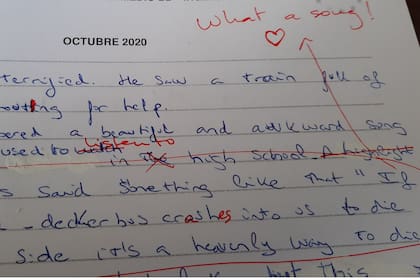 What a song!
OCTUBRE 2020
terrified. He saw a train full of
for help.
a beautiful and awkward song
listen to
used to in high school.
s said something like that "If
- decker bus crashes into us to die
side it's a heavenly way to die
but this